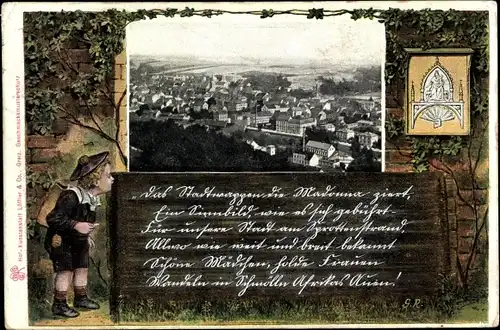 „Das Stadtwappen die Madonna ziert,
Ein Sinnbild, wie es sich gebührt
Für unsere Stadt am Sprottenstrand,
Allwo wie weit und breit bekannt
Schöne Mädchen, holde Frauen
Wandeln in Schmölln Afrikas Auen!
G.R.
Rof.-Kunstanstalt Löffler & Co., Greiz. Geschmacksmusterschutz